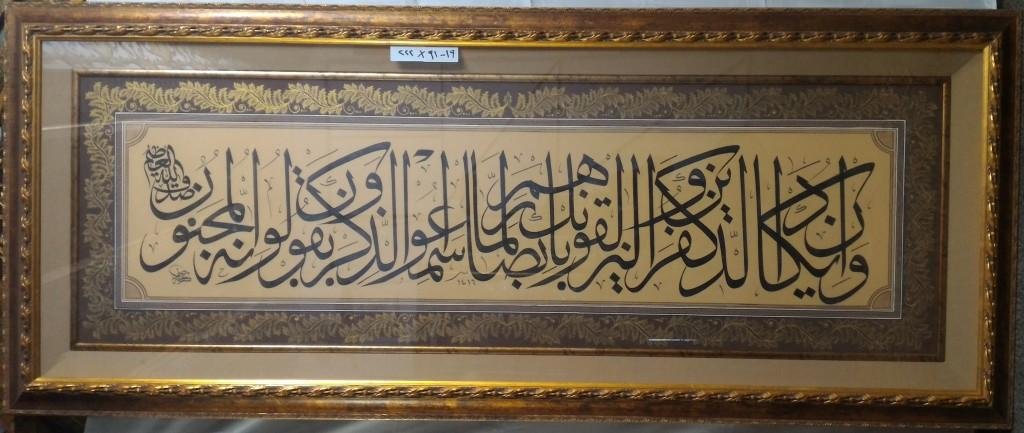 ٢٢٢ × ٩١-١٩
وان يكاد الذين كفروا ليزلقونك بابصارهم لما سمعوا الذكر ويقولون انه لمجنون
صدق الله العظيم
١٤١٦